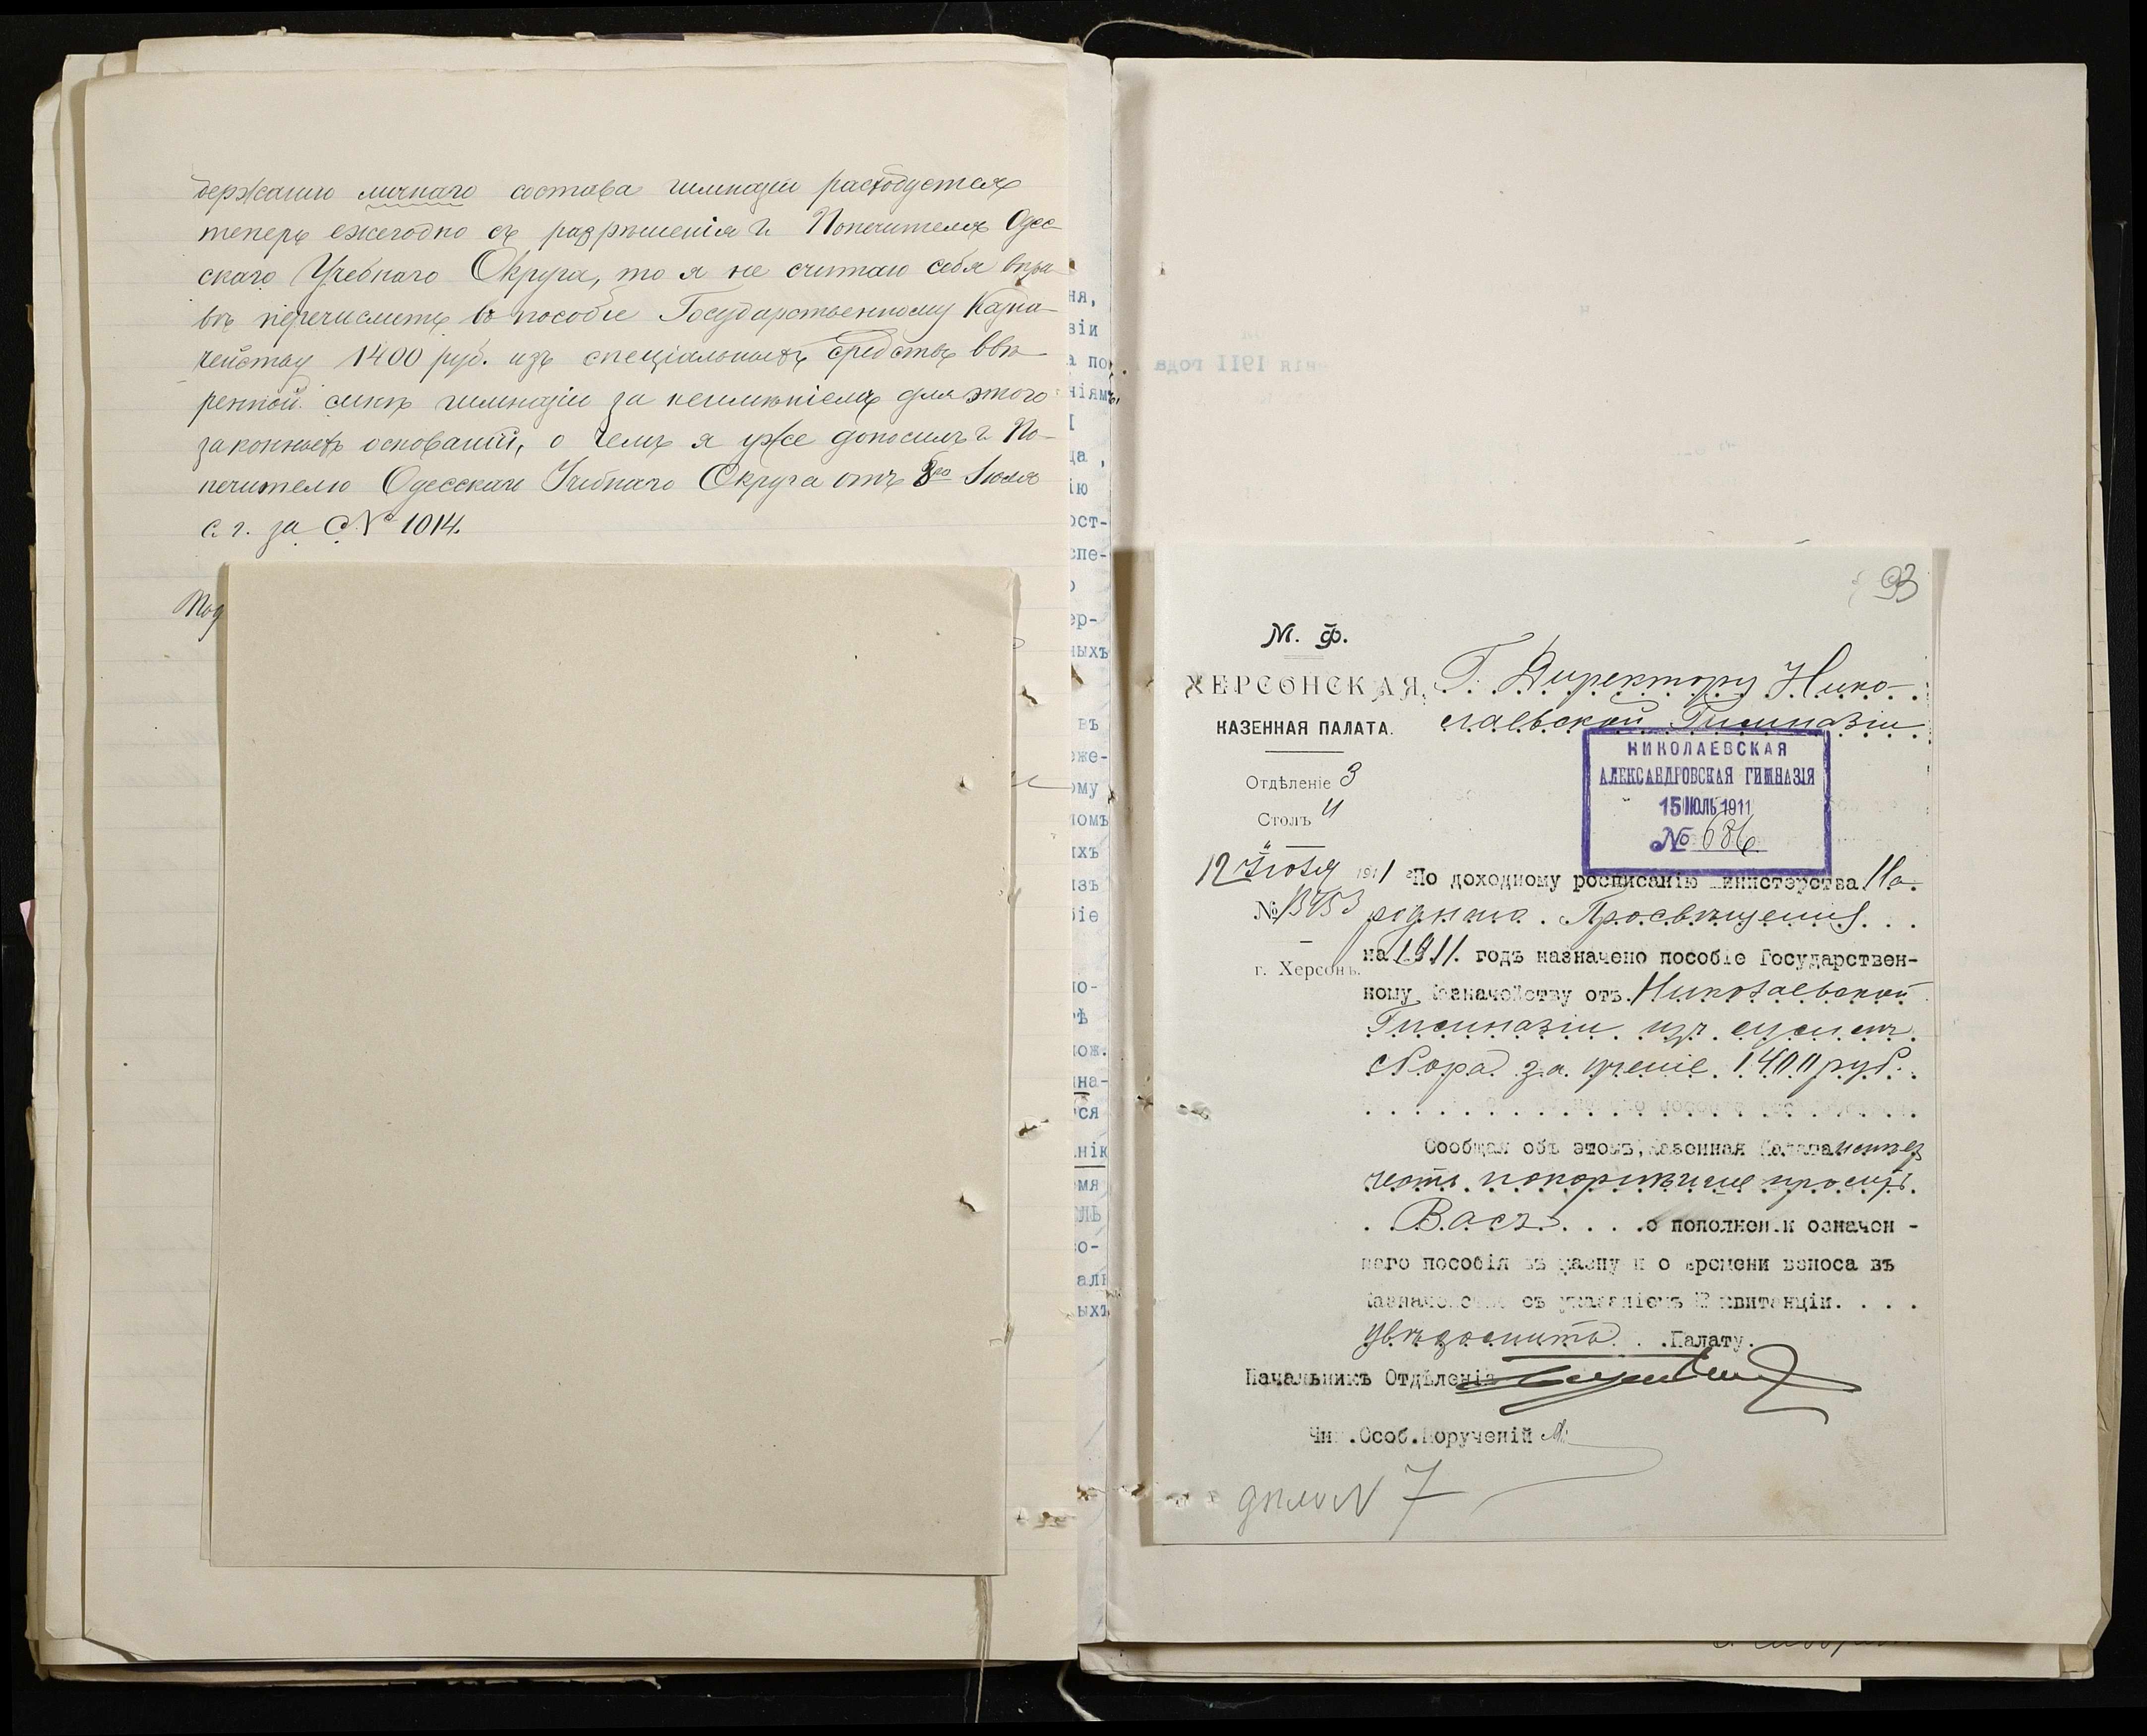 держанію личнаго состава гимназіи расходуется
теперь ежегодно съ разрѣшенія г. Попечителя Одес-
скаго Учебнаго Округа, то я не считаю себя впра-
вѣ перечислить въ пособіе Государственному Казна-
чейству 1400 руб. изъ спеціальныхъ средствъ ввѣ-
ренной мнѣ гимназіи за неимѣніемъ для этого
законныхъ основаній, о чемъ я уже доносилъ г. По-
печителю Одесскаго Учебнаго Округа отъ 8го Іюля
с. г. за № 1014.
Под
ня,
зіи
а по
ніямъ,
ца,
ію
ост-
спе-
ер-
ныхъ
въ
еже-
ому
ломъ
ихъ
изъ
біе
но-
лож.
ина-
тся
нік
мя
оль
во-
аль
ыхъ
93
М. Ф.
ХЕРСОНСКАЯ
КАЗЕННАЯ ПАЛАТА.
Отдѣленіе 3
Столъ 4
12 Іюля 1911 г.
№ 13453
г. Херсонъ.
Г. Директору Нико-
лаевской Гимназіи
НИКОЛАЕВСКАЯ
АЛЕКСАНДРОВСКАЯ ГИМНАЗІЯ
15 ІЮЛЬ 1911
№ 686
По доходному росписанію Министерства На-
роднаго Просвѣщенія
на 1911 годъ назначено пособіе Государствен-
ному Казначейству отъ Николаевской
Гимназіи изъ суммъ
сбора за ученіе 1400 руб.
Сообщая объ этомъ, Казенная Палата имѣетъ
честь покорнѣйше просить
Васъ о пополненіи означен-
наго пособія въ казну и о времени взноса въ
Казначейство съ указаніемъ № квитанціи
увѣдомить Палату.
Начальникъ Отдѣленія
Чин. Особ. Порученій
дѣло N 7